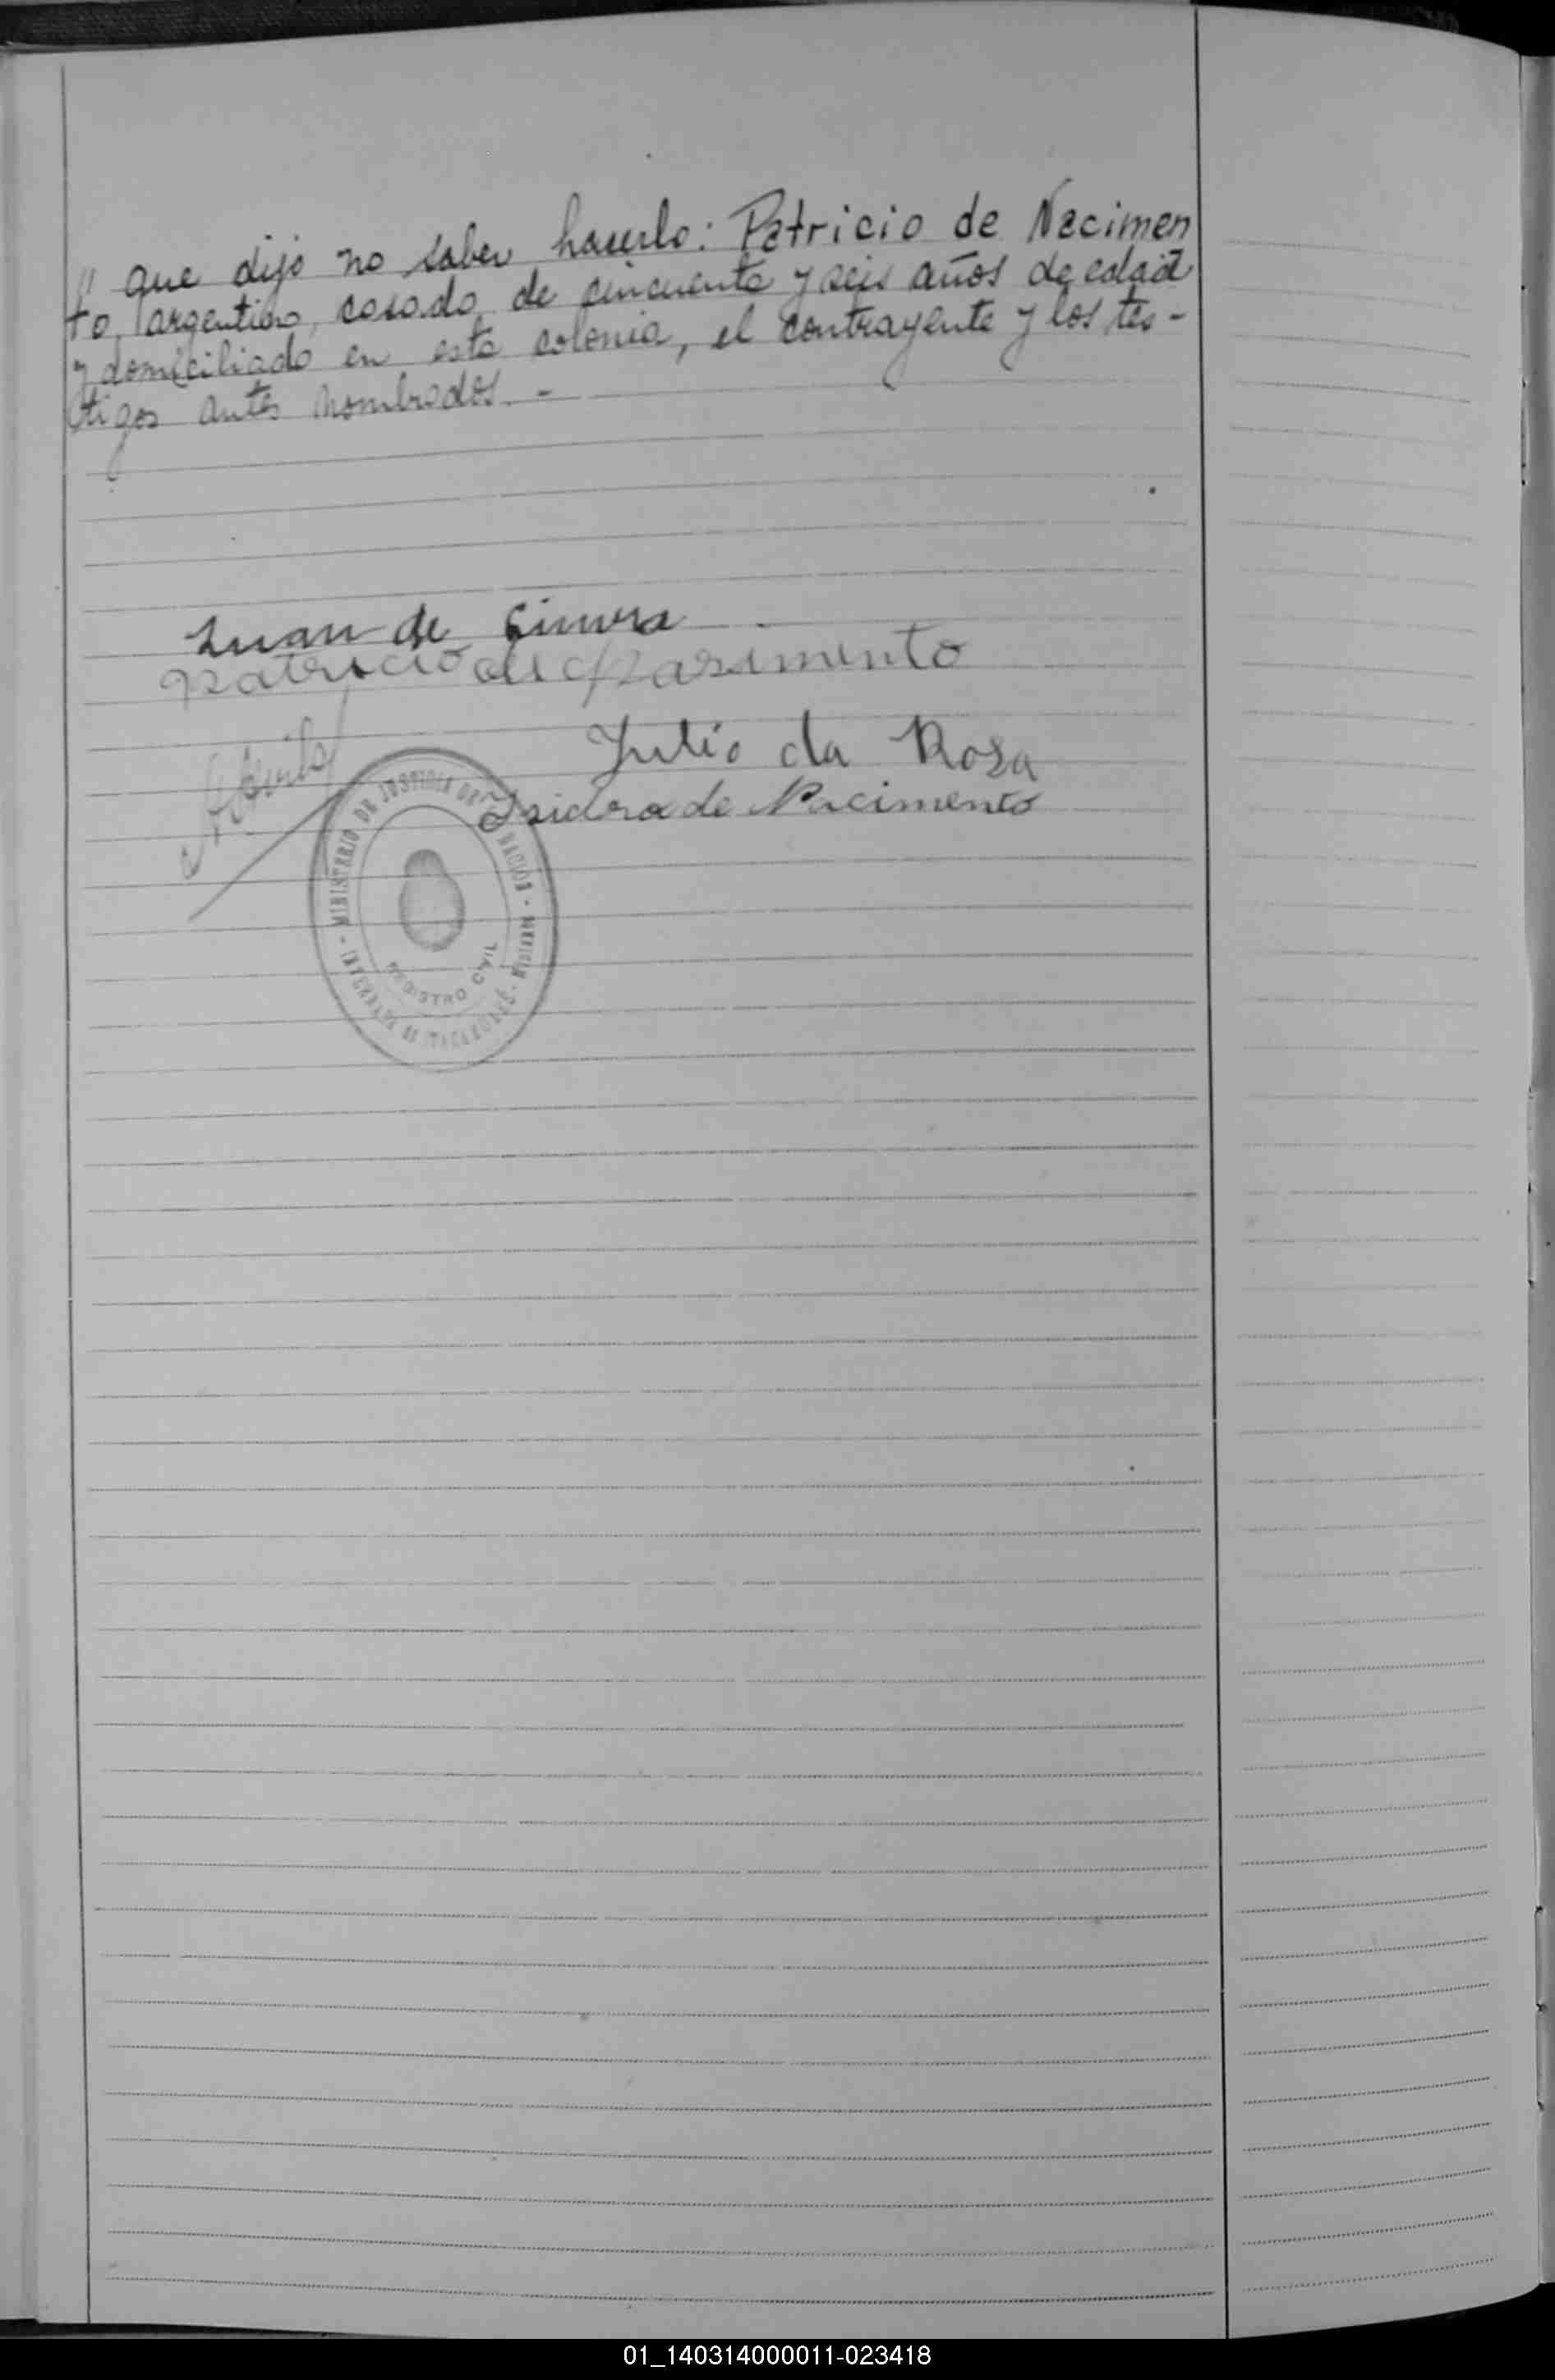 " que dijo no saber hacerlo: Patricio de Nacimen
to, argentino, casado, de cincuenta y seis años de edad
y domiciliado en esta colonia, el contrayente y los tes-
tigos antes nombrados. -
Juan de
Patricio de Nasimento
Julio da Rosa
Isidra de Nacimento
MINISTERIO DE JUSTICIA DE LA NACION - MISIONES
REGISTRO CIVIL
01_140314000011-023418